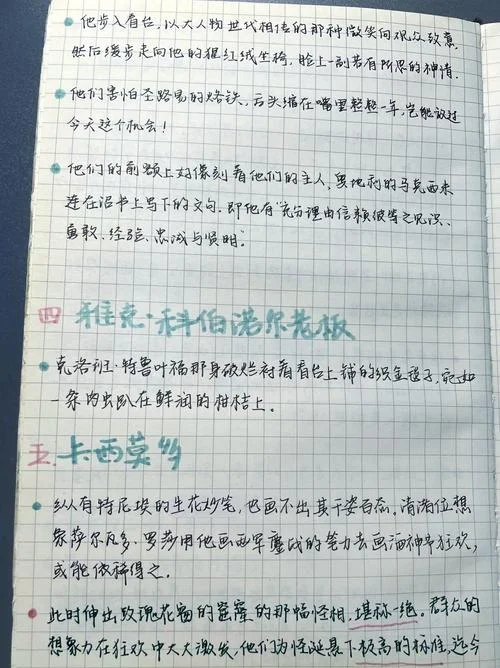 他步入看台，以大人物世代相传的那种微笑向观众致意，
然后缓步走向他的猩红绒坐椅，脸上一副若有所思的神情.
他们害怕圣路易的烙铁，舌头缩在嘴里整整一年，岂能放过
今天这个机会！
他们的前额上好像刻着他们的主人，奥地利的马克西米
连在诏书上写下的文句，即他有“充分理由信赖彼等之见识、
勇敢、经验、忠诚与贤明”.
四 雅克·科伯诺尔老板
克洛班·特鲁叶福那身破烂衬着看台上铺的织金毯子，宛如
一条肉虫趴在鲜润的柑桔上.
五. 卡西莫多
纵有特尼埃的生花妙笔，也画不出其千姿百态. 请诸位想
象萨尔瓦多·罗莎用他画西军鏖战的笔力去画酒神节狂欢，
或能依稀得之.
此时伸出玫瑰花窗的窟窿的那幅怪相，堪称一绝. 群众的
想象力在狂欢中大大激发，他们为怪诞悬下极高的标准，迄今